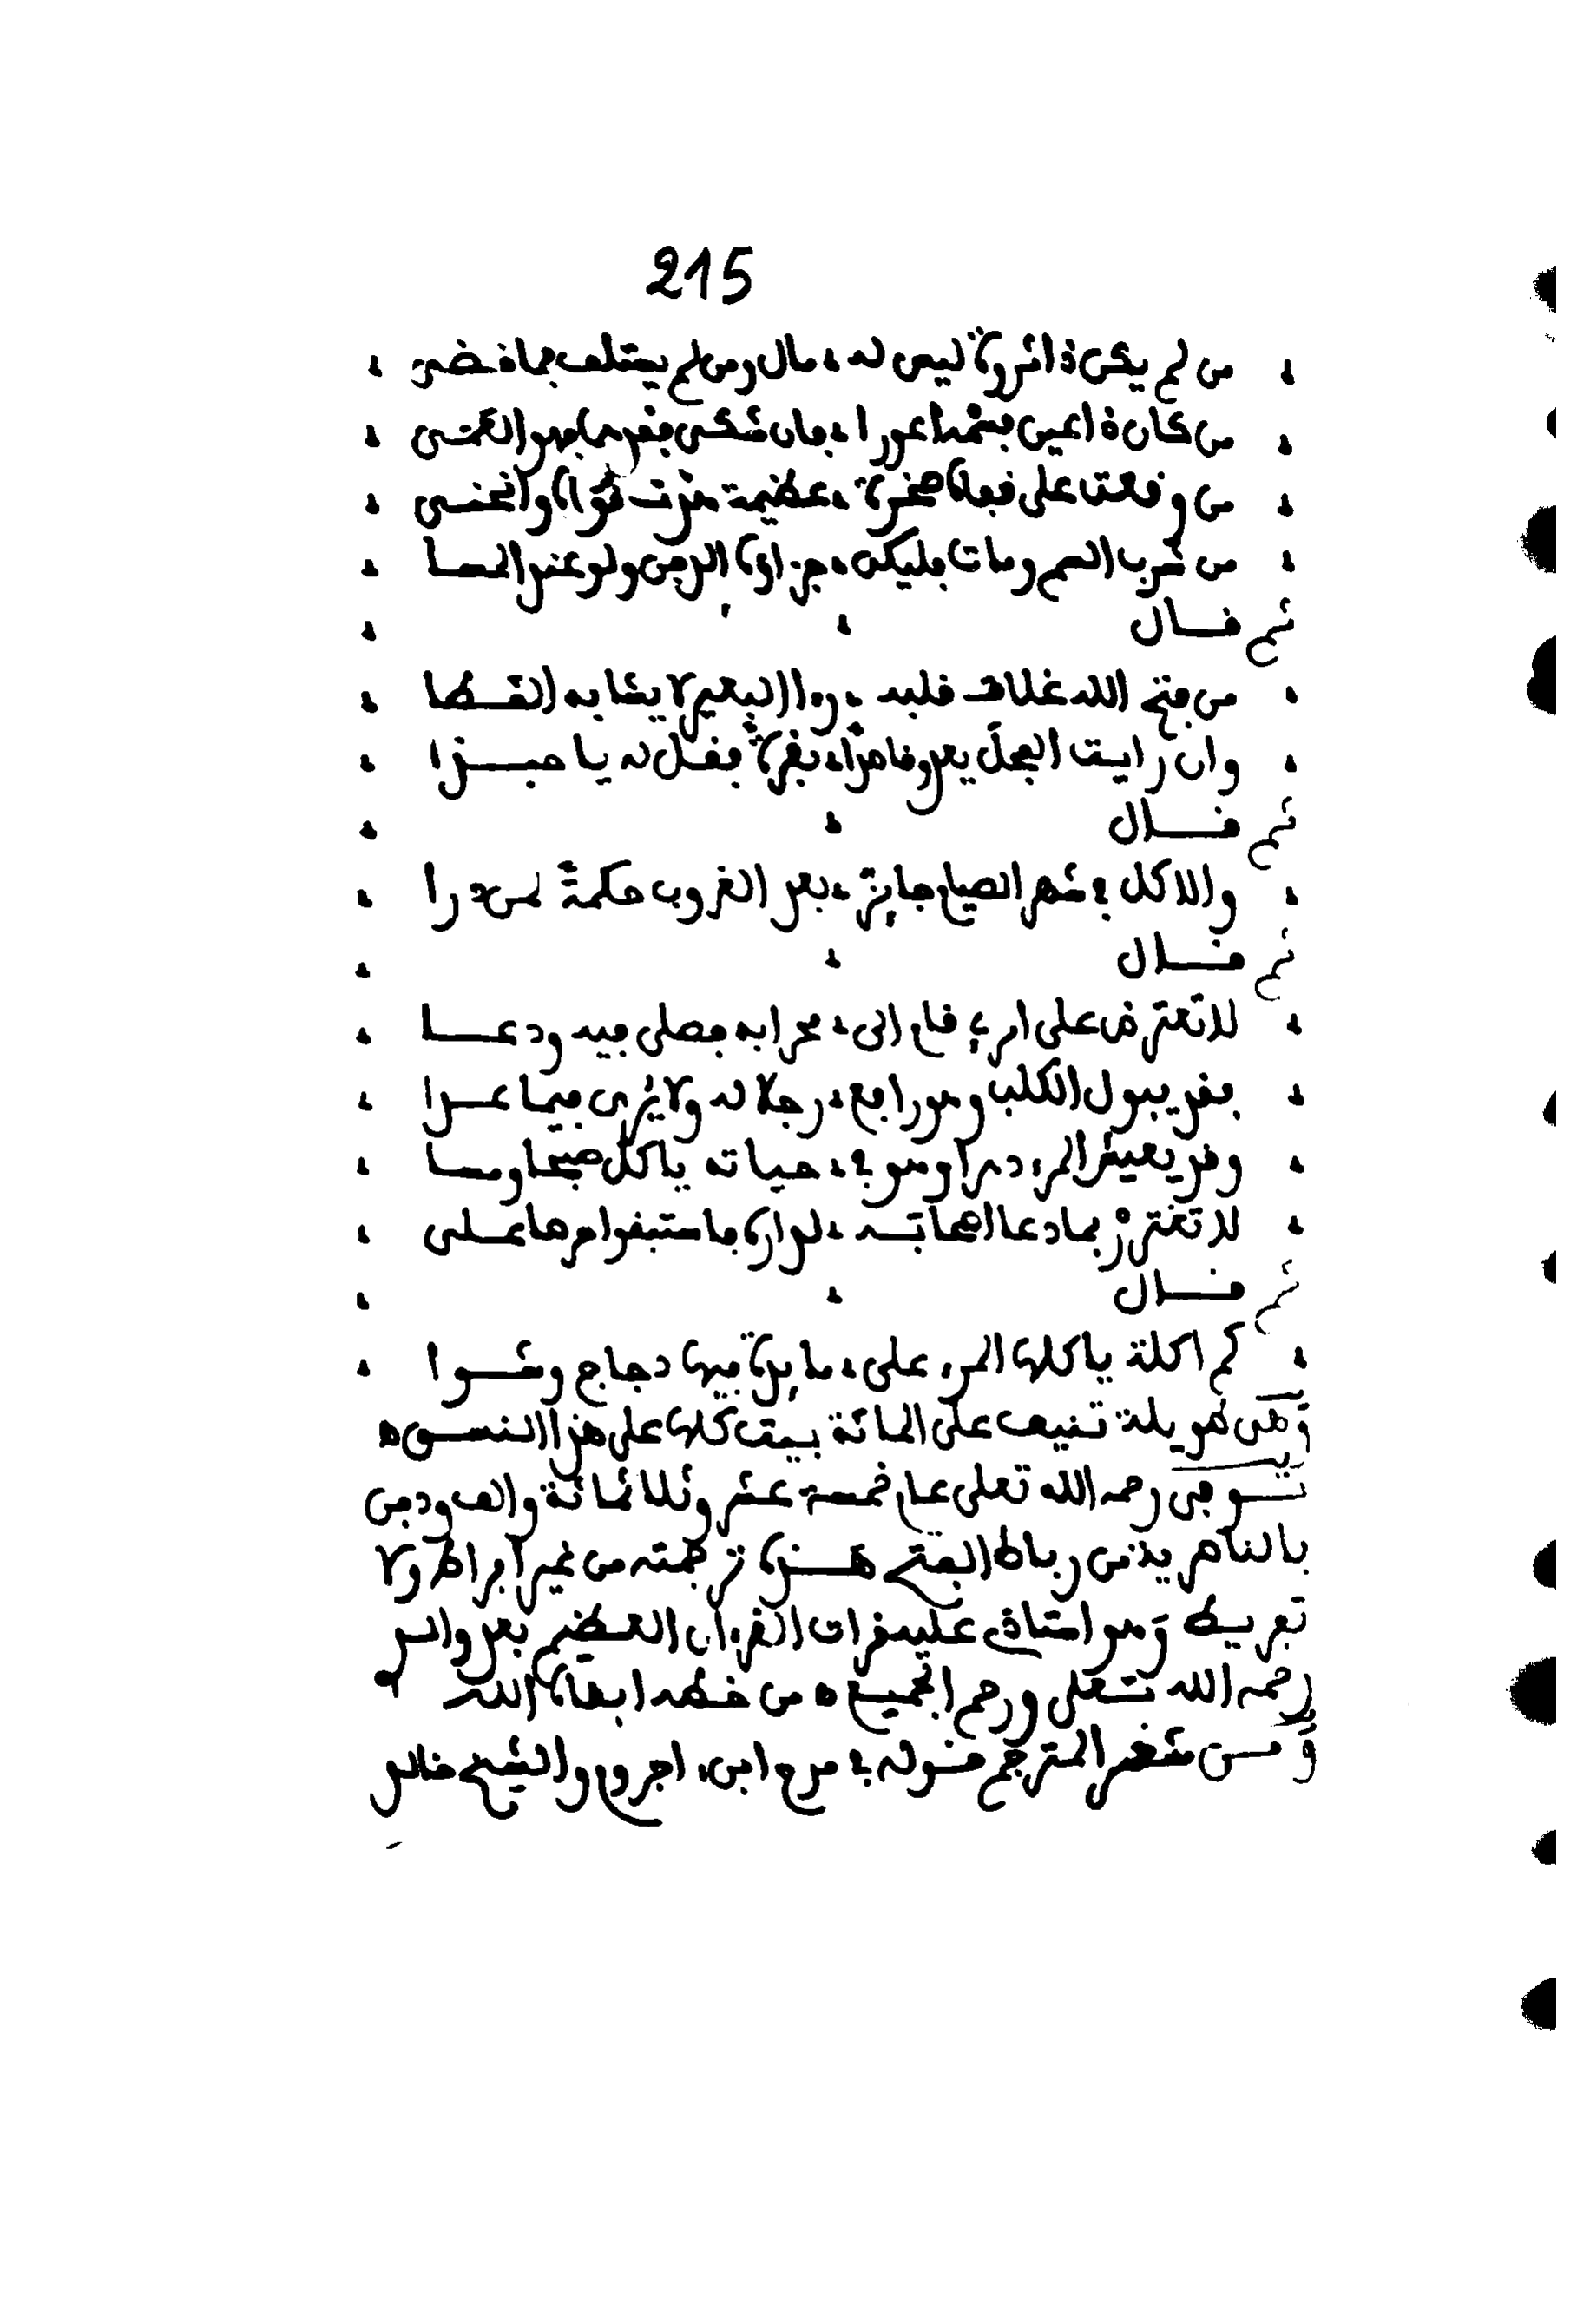 215
من لم يكن ذا ثروة ليس له ، مال ومن لم يعتلف بما قضى
من كان ذا عين بيضا عورا ، فان شكى بفرها فهو العمى
من وقعت على قفاه صخرة ، عظيمة هزت قواه وانحنى
من شرب السم ومات فليكن ، جزاؤه الدفن ولو عند المسا
ثم قال
من فتح الله غلاف قلبه ، رءا البعير لا يشابه القطا
وان رايت العجل يعدو قاصدا ، بقرة فقل له يا حبذا
ثم قال
والاكل في شهر الصيام جايز ، بعد الغروب حكمة لمن درا
ثم قال
لا تعترض على امرئ قام الى ، محرابه فصلى فيه ودعا
فقد يبول الكلب وهو رافع ، رجلا له ولا يرى فيما عدا
وقد يعيش المرء دهرا وهو في ، حياته ياكل صبحا ومسا
لا تغترر بما دعا اصحابه ، لداره فاستبقوا مرها على
ثم قال
كم اكلة ياكلها المرء على ، مايدة فيها دجاج وشوا
وهي طويلة تنيف على المائة بيت كلها على هذا النسق ه
توفي رحمه الله تعلى عام خمسة عشر وثلاثمائة والف ودفن
بالناصرية من رباط الفتح هذه ترجمته من غير افراط ولا
تفريط وهو استاذي عليه قرات القرءان العظيم بعد والدي
رحمه الله تعلى ورحم الجميع ه من خطه ابقاه الله
ومن شعر المترجم قوله في مدح ابن ءاجروم والشيخ خالد